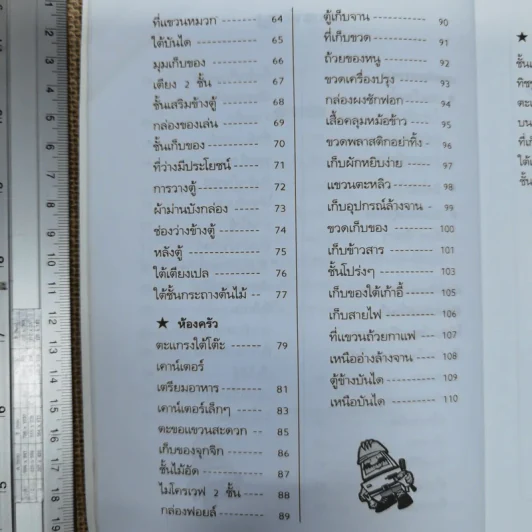 ที่แขวนหมวก ------- 64
ใต้บันได ---------- 65
มุมเก็บของ -------- 66
เตียง 2 ชั้น -------- 67
ชั้นเสริมข้างตู้ ------ 68
กล่องของเล่น ------ 69
ชั้นเก็บของ -------- 70
ที่ว่างมีประโยชน์ ----- 71
การวางตู้ --------- 72
ผ้าม่านบังกล่อง ----- 73
ช่องว่างข้างตู้ ------ 74
หลังตู้ ------------ 75
ใต้เตียงเปล -------- 76
ใต้ชั้นกระถางต้นไม้ -- 77
★ ห้องครัว
ตะแกรงใต้โต๊ะ ------ 79
เคาน์เตอร์
เตรียมอาหาร ------- 81
เคาน์เตอร์เล็กๆ ----- 83
ตะขอแขวนสะดวก -- 85
เก็บของจุกจิก ------ 86
ชั้นไม้อัด ---------- 87
ไมโครเวฟ 2 ชั้น --- 88
กล่องฟอยล์ ------- 89
ตู้เก็บจาน --------- 90
ที่เก็บขวด --------- 91
ถ้วยของหนู -------- 92
ขวดเครื่องปรุง ------ 93
กล่องผงซักฟอก ---- 94
เสื้อคลุมหม้อข้าว ---- 95
ขวดพลาสติกอย่าทิ้ง - 96
เก็บผักหยิบง่าย ----- 97
แขวนตะหลิว ------- 98
เก็บอุปกรณ์ล้างจาน - 99
ขวดเก็บของ ------- 100
เก็บข้าวสาร ------- 101
ชั้นโปร่งๆ --------- 103
เก็บของใต้เก้าอี้ ----- 105
เก็บสายไฟ -------- 106
ที่แขวนถ้วยกาแฟ --- 107
เหนืออ่างล้างจาน --- 108
ตู้ข้างบันได -------- 109
เหนือบันได -------- 110